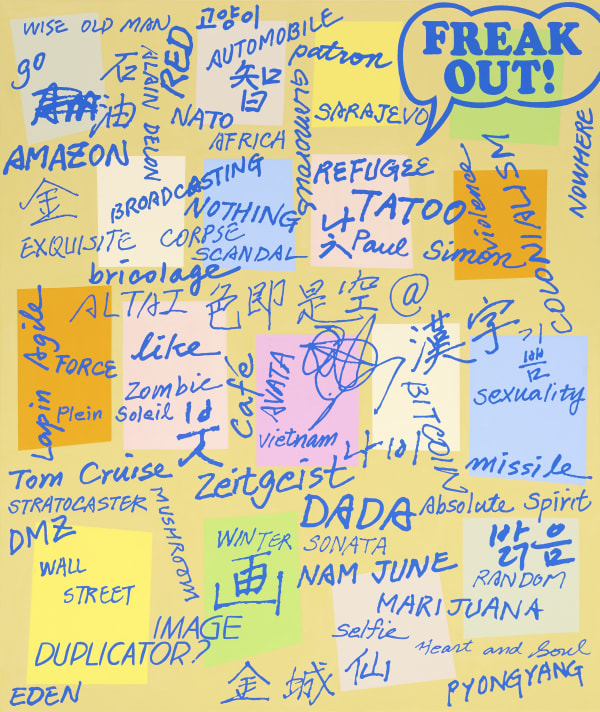 WISE OLD MAN
고양이
RED
AUTOMOBILE
patron
FREAK
OUT!
go
石
油
ALAIN DELON
NATO
智
AFRICA
GLAMOROUS
SARAJEVO
NOWHERE
AMAZON
金
BROADCASTING
NOTHING
REFUGEE
TATOO
violence
COLONIALISM
EXQUISITE CORPSE
SCANDAL
Paul
Simon
bricolage
ALTAI
色即是空@
漢字
Lapin Agile
FORCE
like
Zombie
Plein Soleil
Café
AVATA
Vietnam
BITCOIN
sexuality
missile
Tom Cruise
Zeitgeist
STRATOCASTER
MUSHROOM
DADA
Absolute Spirit
DMZ
WINTER SONATA
밝음
WALL
STREET
画
NAM JUNE
RANDOM
MARIJUANA
IMAGE
DUPLICATOR?
selfie
Heart and Soul
EDEN
金城
仙
PYONGYANG